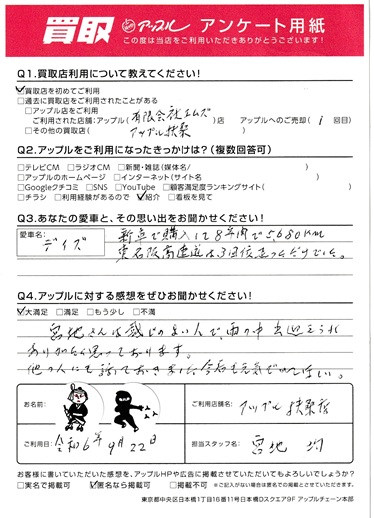 買取 アップル アンケート用紙
この度は当店をご利用いただきありがとうございます!
Q1.買取店利用について教えてください!
☑買取店を初めてご利用
□過去に買取店をご利用されたことがある
□アップル店をご利用
ご利用された店舗:アップル(有限会社エムズ)店 アップルへのご売却(1 回目)
□その他の買取店( アップル扶桑 )
Q2.アップルをご利用になったきっかけは?(複数回答可)
□テレビCM □ラジオCM □新聞・雑誌(媒体名/ )
□アップルのホームページ □インターネット(サイト名 )
□Googleクチコミ □SNS □YouTube □顧客満足度ランキングサイト( )
□チラシ □利用経験があるので ☑紹介 □看板を見て
Q3.あなたの愛車と、その思い出をお聞かせください!
愛車名: デイズ
新車で購入して8年間で5,680km
東名阪高速道は3回位走っただけでした。
Q4.アップルに対する感想をぜひお聞かせください!
☑大満足 □満足 □もう少し □不満
宮地さんは感じのよい人で、雨の中出迎えられ
ありがたく思っております。
他の人にも話しておきました 今后も元気でいてほしい。
お名前:
ご利用店舗名: アップル扶桑店
ご利用日: 令和6年9月22日
担当スタッフ名: 宮地
お客様に書いていただいた感想を、アップルHPや広告に掲載させていただいてもよろしいでしょうか?
□実名で掲載可 ☑匿名なら掲載可 □掲載不可 ※ご記入がない場合は匿名での掲載とさせていただきます。
東京都中央区日本橋1丁目16番11号日本橋Dスクエア9F アップルチェーン本部